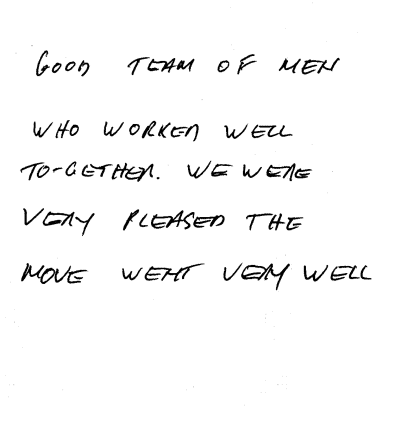 GOOD TEAM OF MEN
WHO WORKED WELL
TO-GETHER. WE WERE
VERY PLEASED THE
MOVE WENT VERY WELL